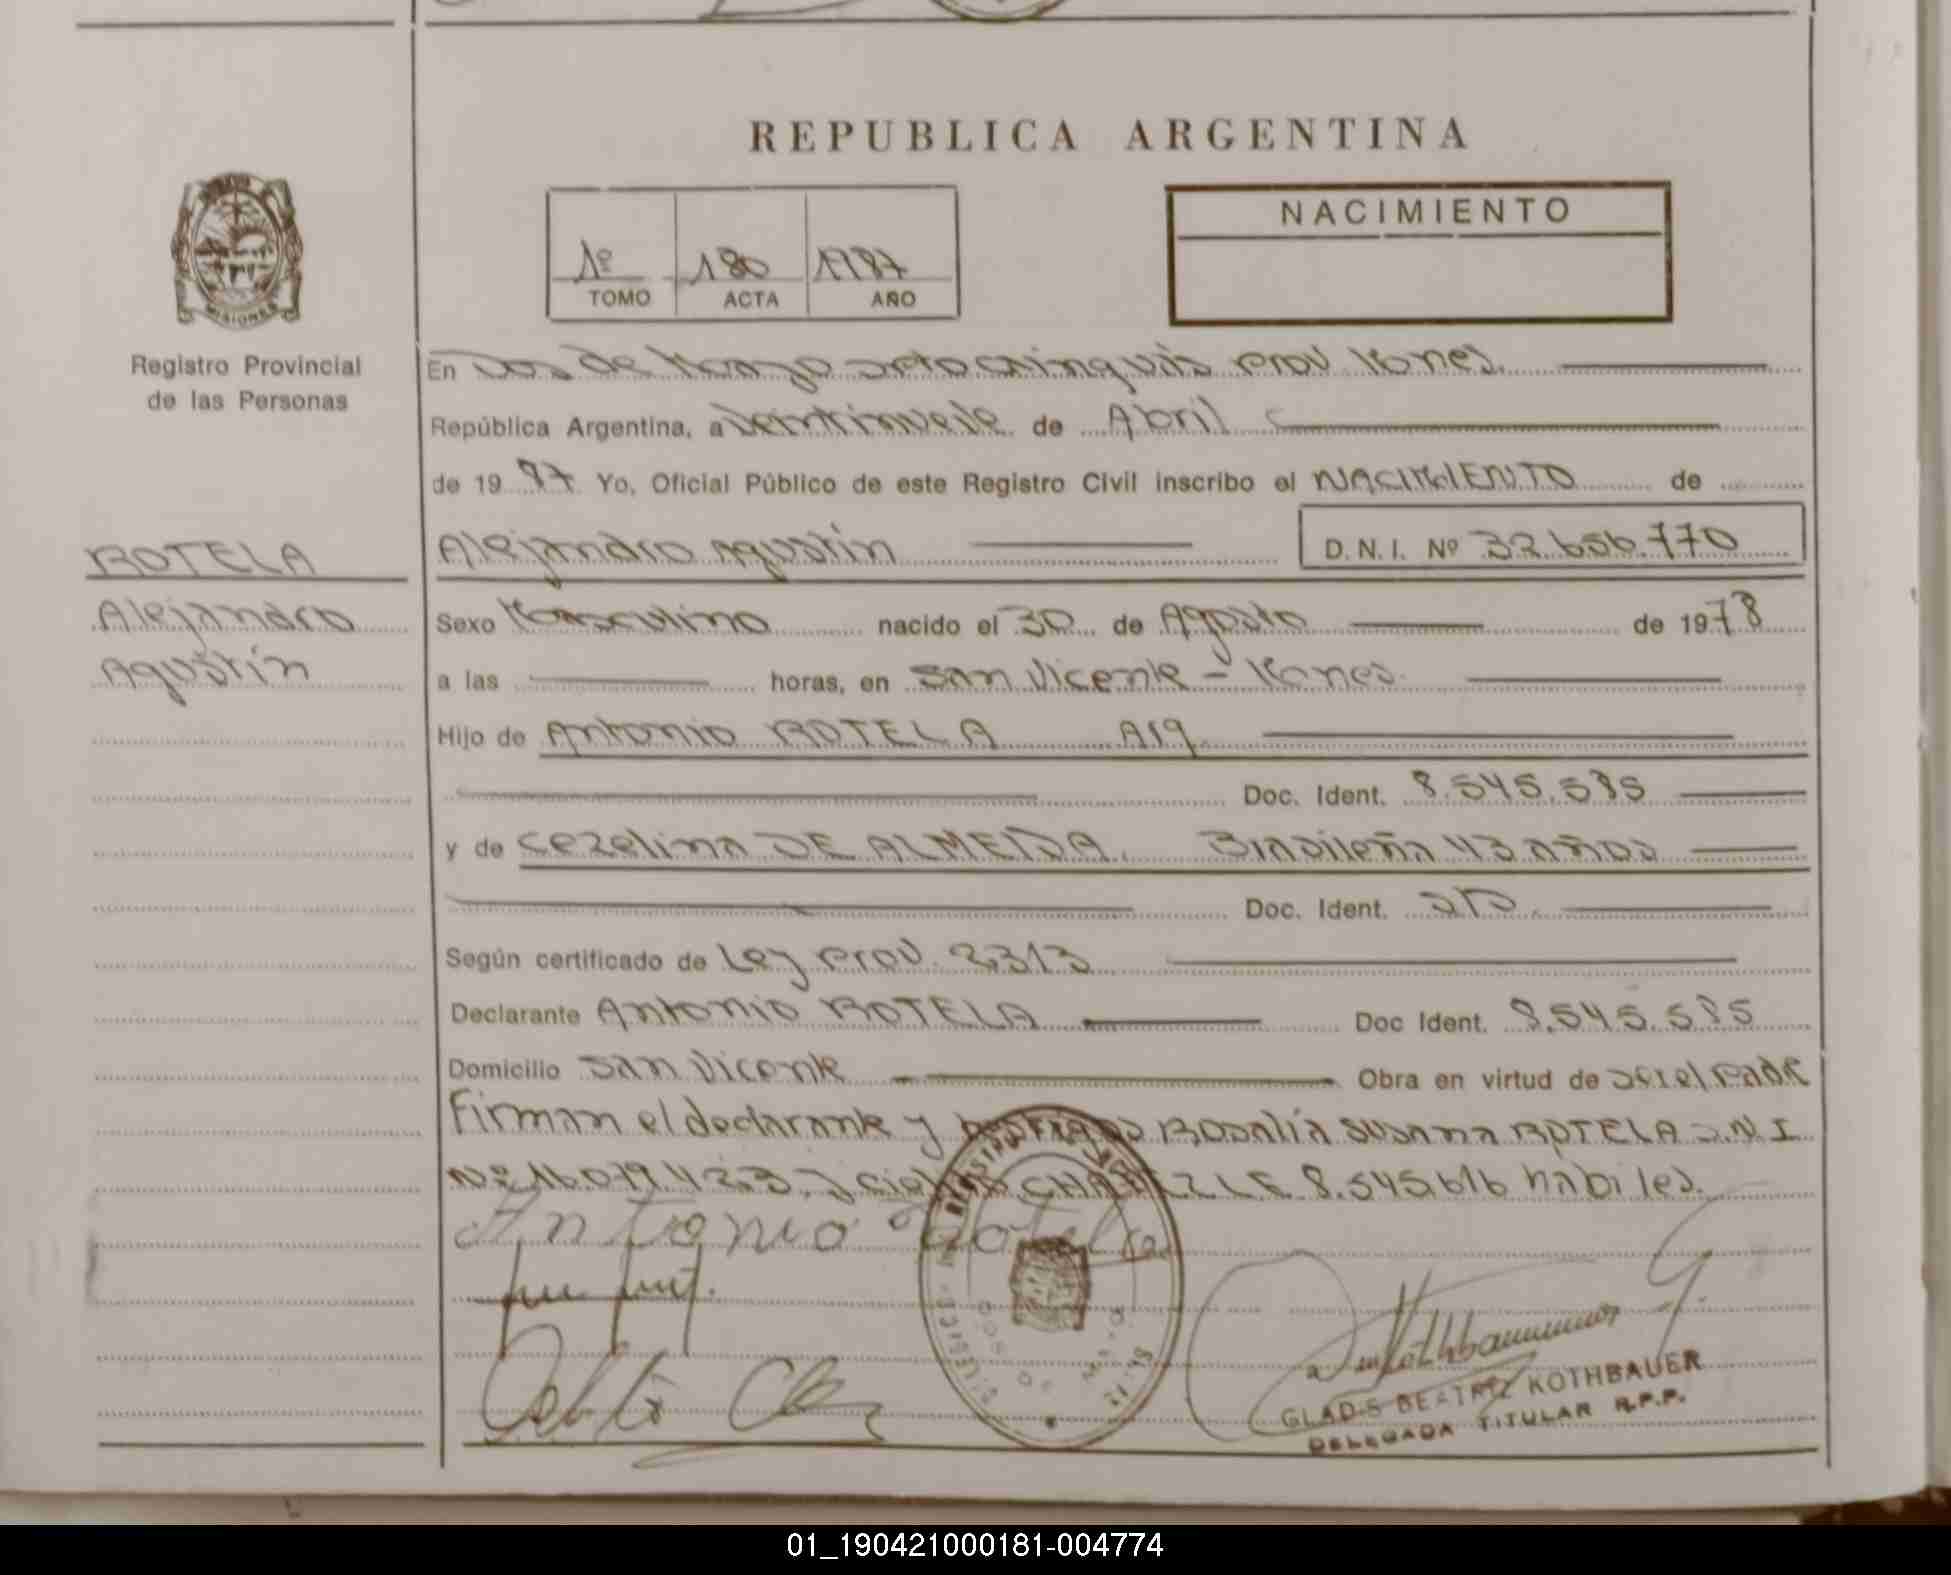 REPUBLICA ARGENTINA
NACIMIENTO
1º 180 1987
TOMO ACTA AÑO
MISIONES
Registro Provincial
de las Personas
En Dos de Mayo prov Mones.
República Argentina, a veintinueve de Abril
de 1987 Yo, Oficial Público de este Registro Civil inscribo el NACIMIENTO de
ROTELA
Alejandro Agustín D.N.I. Nº 32.656.770
Alejandro
Sexo Masculino nacido el 30 de Agosto de 1978
Agustín
a las horas, en San Vicente - Mones.
Hijo de Antonio ROTELA Arg.
Doc. Ident. 8.545.585
y de Cezelina DE ALMEIDA. Brasileña 43 años
Doc. Ident.
Según certificado de Ley prov. 2313
Declarante Antonio ROTELA Doc Ident. 8.545.585
Domicilio San Vicente Obra en virtud de ser el Padre
Firman el declarante y Rosalía Susana ROTELA D.N.I
Nº 16.079.423 y LE 8.545.616 hábiles.
Antonio Rotela
GLADIS BEATRIZ KOTHBAUER
DELEGADA TITULAR R.P.P.
01_190421000181-004774